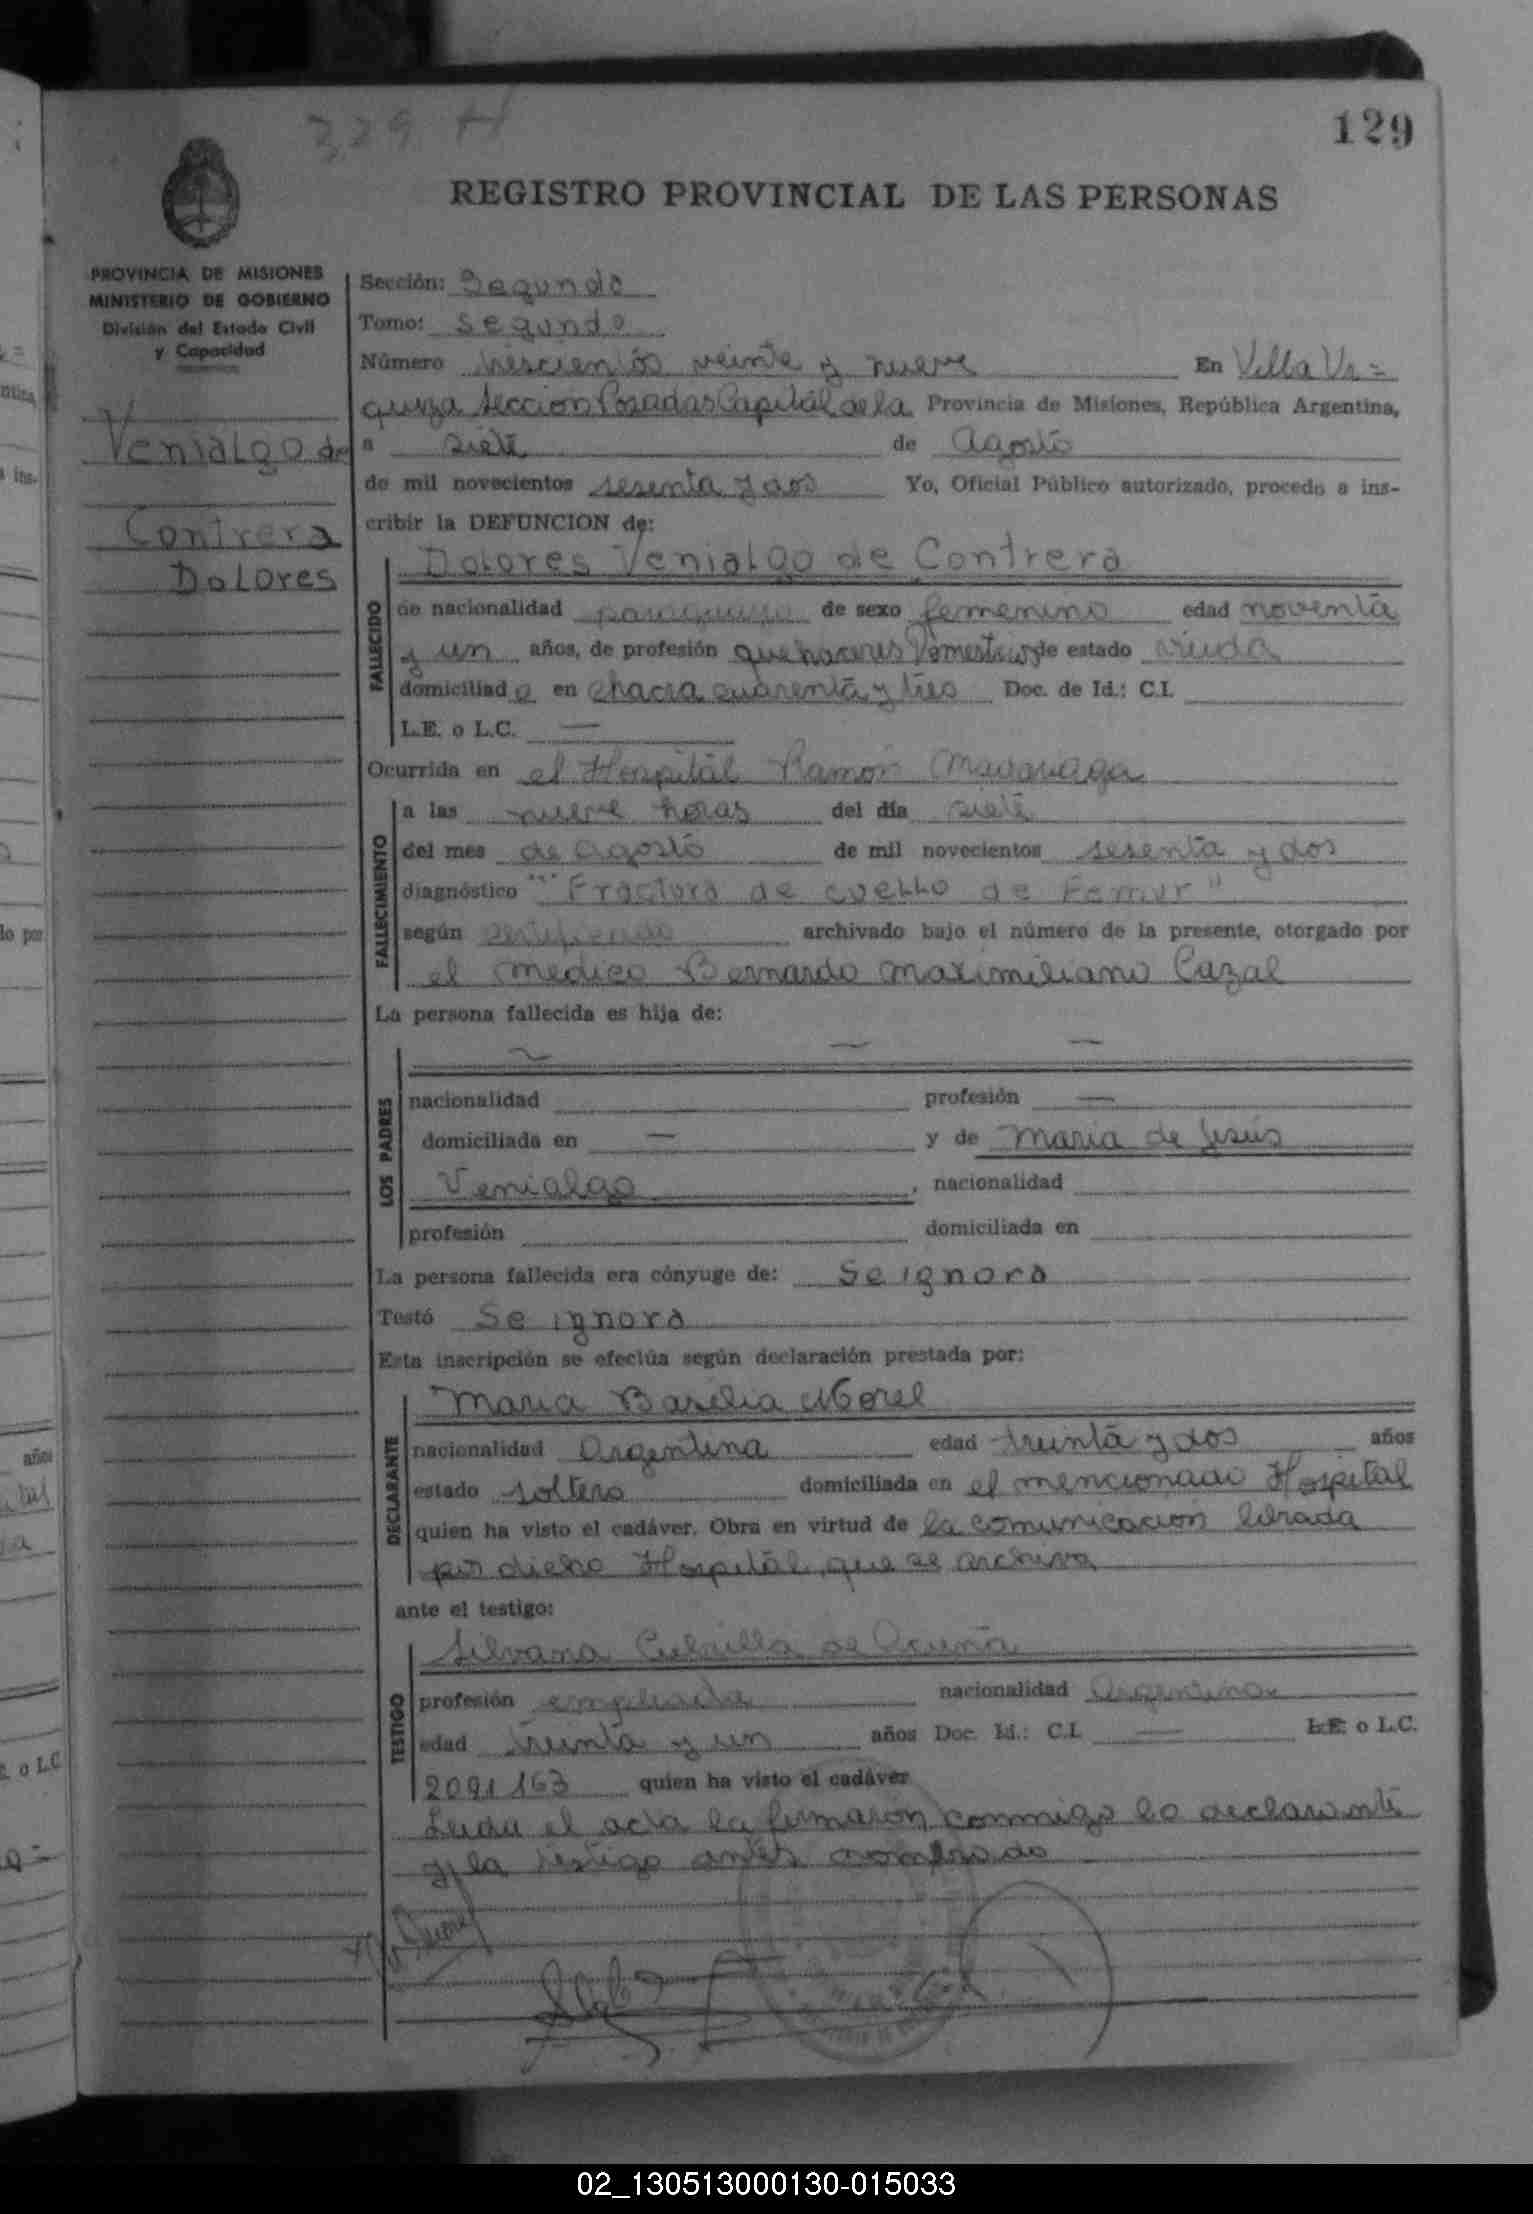 329 H
129
REGISTRO PROVINCIAL DE LAS PERSONAS
PROVINCIA DE MISIONES
MINISTERIO DE GOBIERNO
División del Estado Civil
y Capacidad
Venialgo de
Contrera
Dolores
Sección: Segunda
Tomo: segundo
Número trescientos veinte y nueve En Villa Ur=
quiza Sección Posadas Capital de la Provincia de Misiones, República Argentina,
a siete de Agosto
de mil novecientos sesenta y dos Yo, Oficial Público autorizado, procedo a ins-
cribir la DEFUNCION de:
Dolores Venialgo de Contrera
FALLECIDO
de nacionalidad paraguaya de sexo femenino edad noventa
y un años, de profesión quehaceres Domesticos de estado viuda
domiciliada en chacra cuarenta y tres Doc. de Id.: C.I.
L.E. o L.C. —
Ocurrida en el Hospital Ramón Madariaga
FALLECIMIENTO
a las nueve horas del día siete
del mes de agosto de mil novecientos sesenta y dos
diagnóstico "Fractura de cuello de Femur"
según certificado archivado bajo el número de la presente, otorgado por
el medico Bernardo Maximiliano Cazal
La persona fallecida es hija de:
LOS PADRES
— — —
nacionalidad profesión —
domiciliada en — y de Maria de Jesús
Venialgo, nacionalidad
profesión domiciliada en
La persona fallecida era cónyuge de: Se ignora
Testó Se ignora
Esta inscripción se efectúa según declaración prestada por:
DECLARANTE
Maria Basilia Morel
nacionalidad Argentina edad treinta y dos años
estado soltera domiciliada en el mencionado Hospital
quien ha visto el cadáver. Obra en virtud de la comunicación librada
por dicho Hospital, que se archiva
ante el testigo:
TESTIGO
Silvana Cubilla de Acuña
profesión empleada nacionalidad Argentina
edad treinta y un años Doc. Id.: C.I. — L.E. o L.C.
2091163 quien ha visto el cadáver
Leida el acta la firmaron conmigo la declarante
y la testigo antes nombrada
02_130513000130-015033